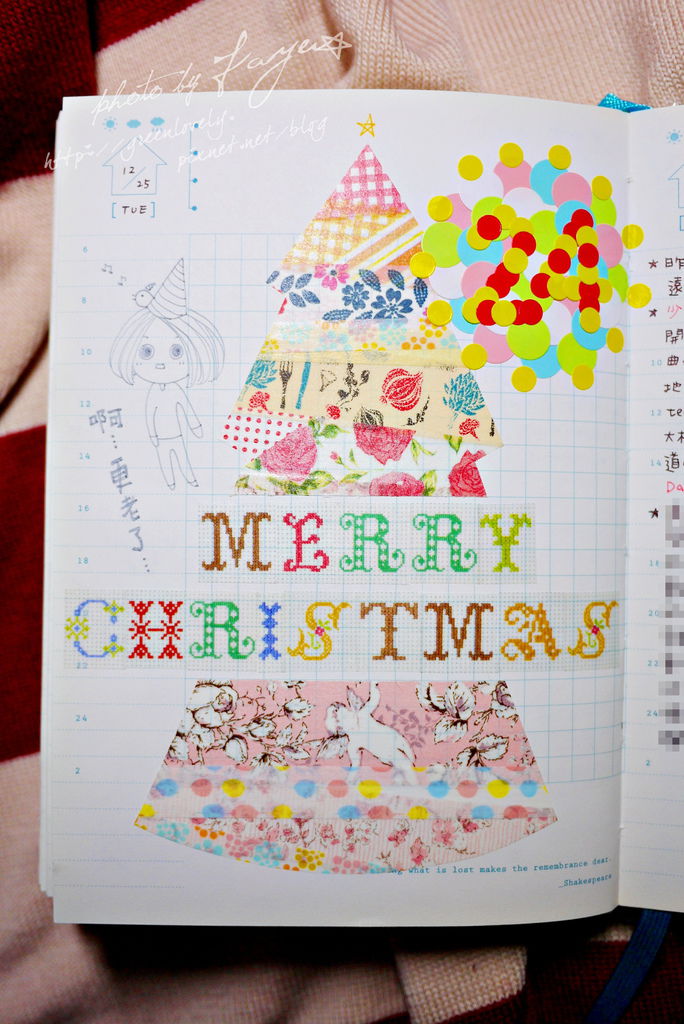 photo by Faye☆
http://greenlovely.
pixnet.net/blog
12/25
[TUE]
6
8
10
12
14
16
18
22
24
2
啊…更老了…
MERRY
CHRISTMAS
what is lost makes the remembrance dear.
_Shakespeare
★昨
遠
★少
開
10
曲
地
12
te
大林
14
道
Da
★
18
20
22
24
2